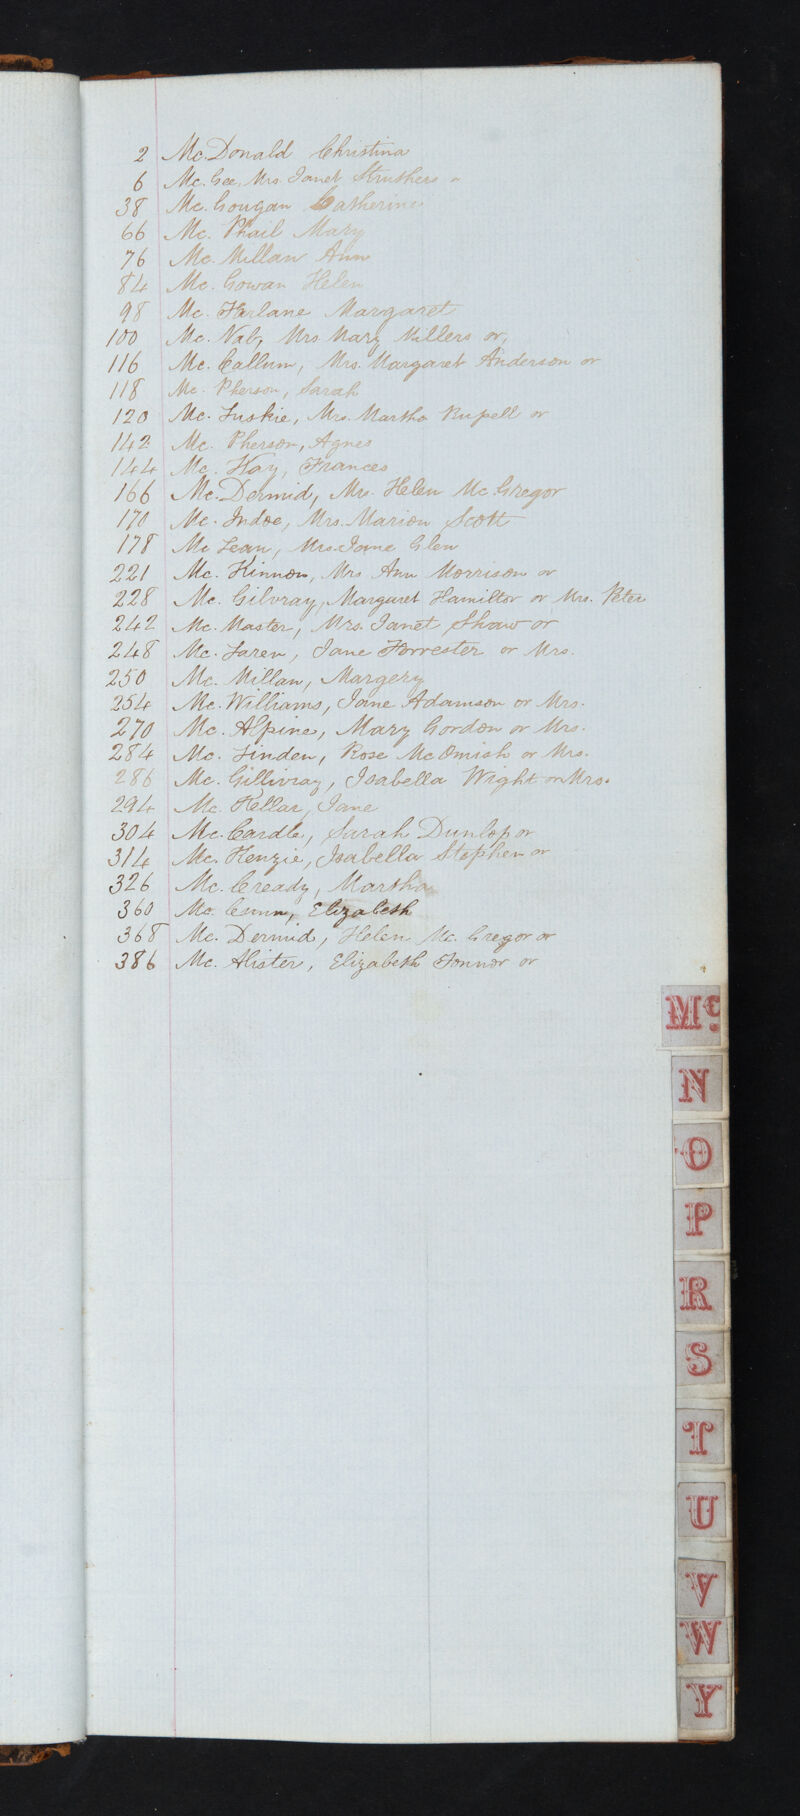 2 Mc. Donald Christina
6 Mc. Gee, Mrs. Janet Struthers
38 Mc. Gougan Catherine
66 Mc. Phail Mary
76 Mc. Millan Ann
84 Mc. Gowan Helen
98 Mc. Farlane Margaret
100 Mc. Nab, Mrs Mary Millers or,
116 Mc. Callum, Mrs. Margaret Anderson or
118 Mc. Pherson, Sarah
120 Mc. Luskie, Mrs. Martha or
142 Mc. Pherson, Agnes
144 Mc. Kay, Frances
166 Mc. Dermid, Mrs. Helen Mc. Gregor
170 Mc. Indoe, Mrs. Marion Scott
178 Mc Lean, Mrs. Jane Glen
221 Mc. Kinnon, Mrs Ann Morrison or
228 Mc. Gilvray, Margaret Hamilton or Mrs. Peter
242 Mc. Master, Mrs. Janet Shaw or
248 Mc. Laren, Jane Forrester or Mrs.
250 Mc. Millan, Margery
254 Mc. Williams, Jane Adamson or Mrs.
270 Mc. Alpine, Mary Gordon or Mrs.
284 Mc. Linden, Rose Mc Omish or Mrs.
286 Mc. Gillivray, Isabella Wight or Mrs.
294 Mc. Kellar, Jane
304 Mc. Cardle, Sarah Dunlop or
314 Mc. Kenzie, Isabella Stephen or
326 Mc. Cready, Martha
360 Mc. Elizabeth
368 Mc. Dermid, Helen Mc. Gregor or
386 Mc. Alister, Elizabeth Connor or
Mc.
N
O
P
R
S
T
U
V
W
Y